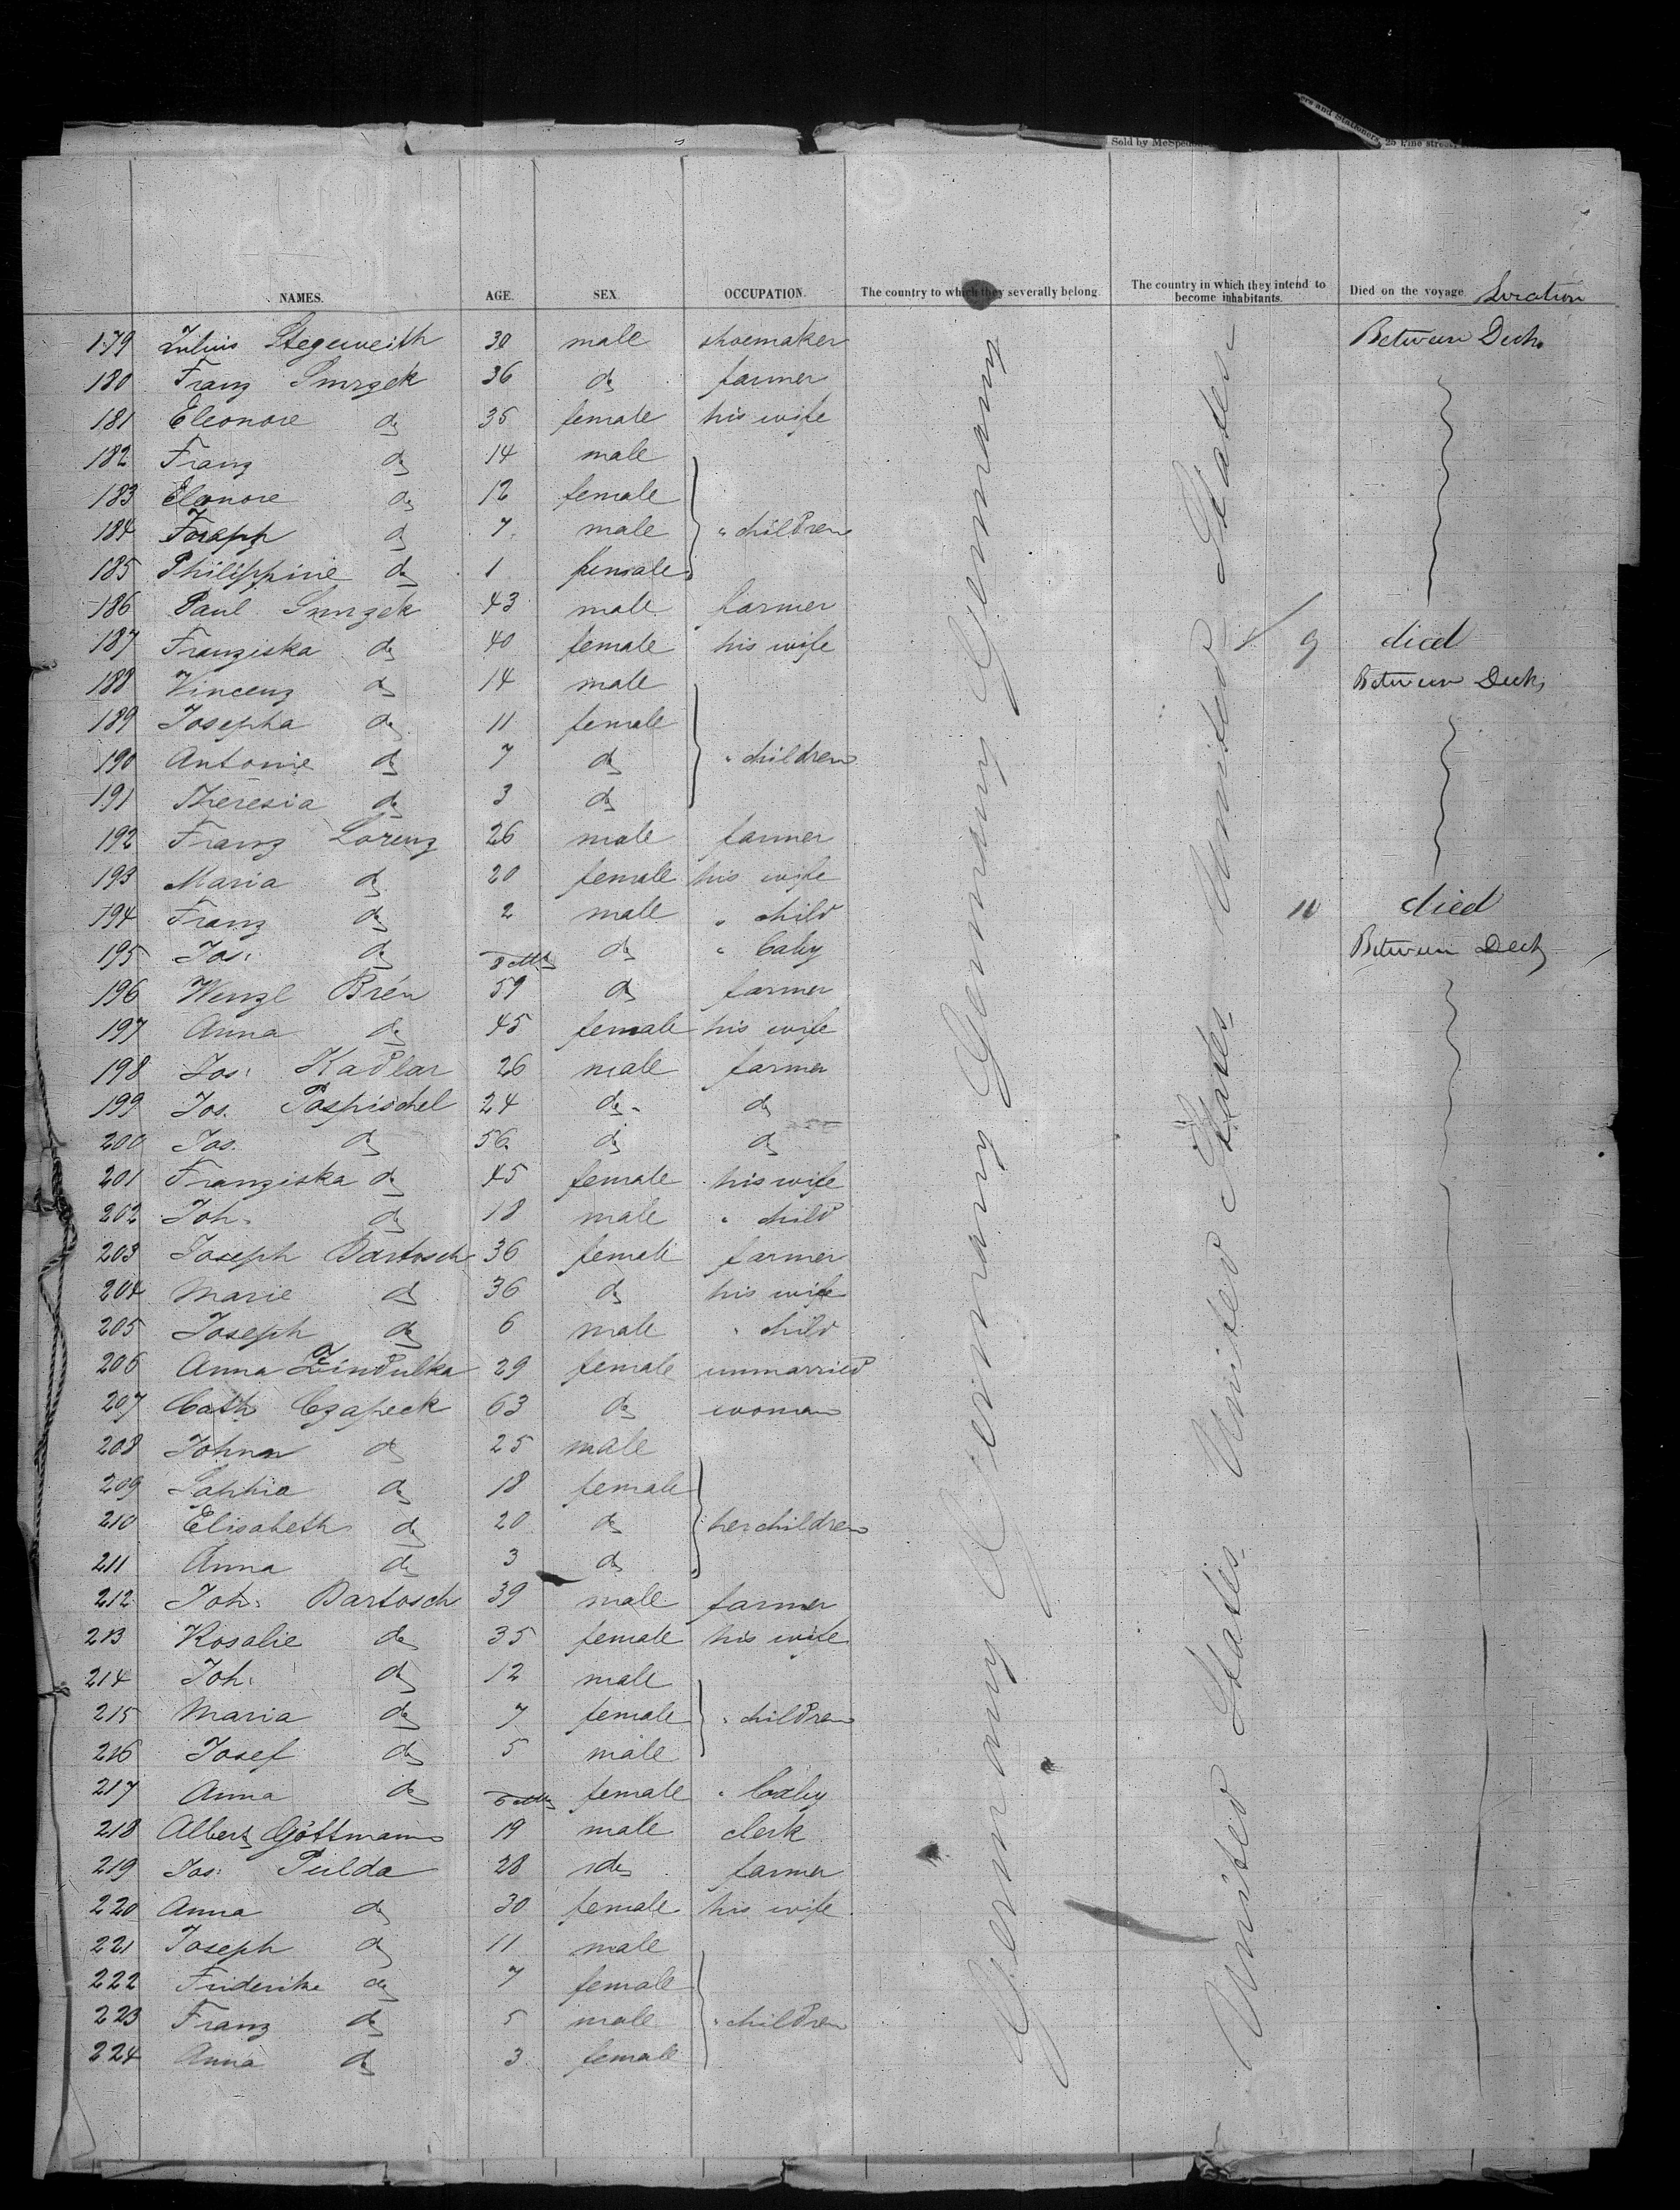 Sold by McSpe
ers and Stationers, 25 Pine stree
NAMES. AGE. SEX. OCCUPATION. The country to which they severally belong. The country in which they intend to become inhabitants. Died on the voyage Location
179 Julius Stegerweith 30 male shoemaker Between Deck
180 Franz Smrzek 36 do farmer
181 Eleonore do 35 female his wife
182 Franz do 14 male
183 Elonore do 12 female
184 Joseph do 7 male " children
185 Philippine do 1 female
186 Paul Smrzek 43 male farmer
187 Franziska do 40 female his wife 9 died
188 Vincenz do 14 male Between Deck
189 Josepha do 11 female
190 Antonie do 7 do " children
191 Theresia do 3 do
192 Franz Lorenz 26 male farmer
193 Maria do 20 female his wife
194 Franz do 2 male " child 10 died
195 Jos: do 8 Mths do " baby Between Deck
196 Wenzl Brén 59 do farmer
197 Anna do 45 female his wife
198 Jos: Kadlar 26 male farmer
199 Jos. Pospischel 24 do do
200 Jos. do 56 do do
201 Franziska do 45 female his wife
202 Joh. do 18 male " child
203 Joseph Bartosch 36 female farmer
204 Marie do 36 do his wife
205 Joseph do 6 male " child
206 Anna Zindulka 29 female unmarried
207 Cath Czapeck 63 do woman
208 Johnn do 25 male
209 Sophia do 18 female
210 Elisabeth do 20 do her children
211 Anna do 3 do
212 Joh: Bartosch 39 male farmer
213 Rosalie do 35 female his wife
214 Joh: do 12 male
215 Maria do 7 female " children
216 Josef do 5 male
217 Anna do 6 Mths female " baby
218 Albert Göttmann 19 male clerk
219 Jos: Pulda 28 do farmer
220 Anna do 30 female his wife
221 Joseph do 11 male
222 Friderike do 7 female
223 Franz do 5 male " children
224 Anna do 3 female
Germany Germany Germany Germany
United States United States United States